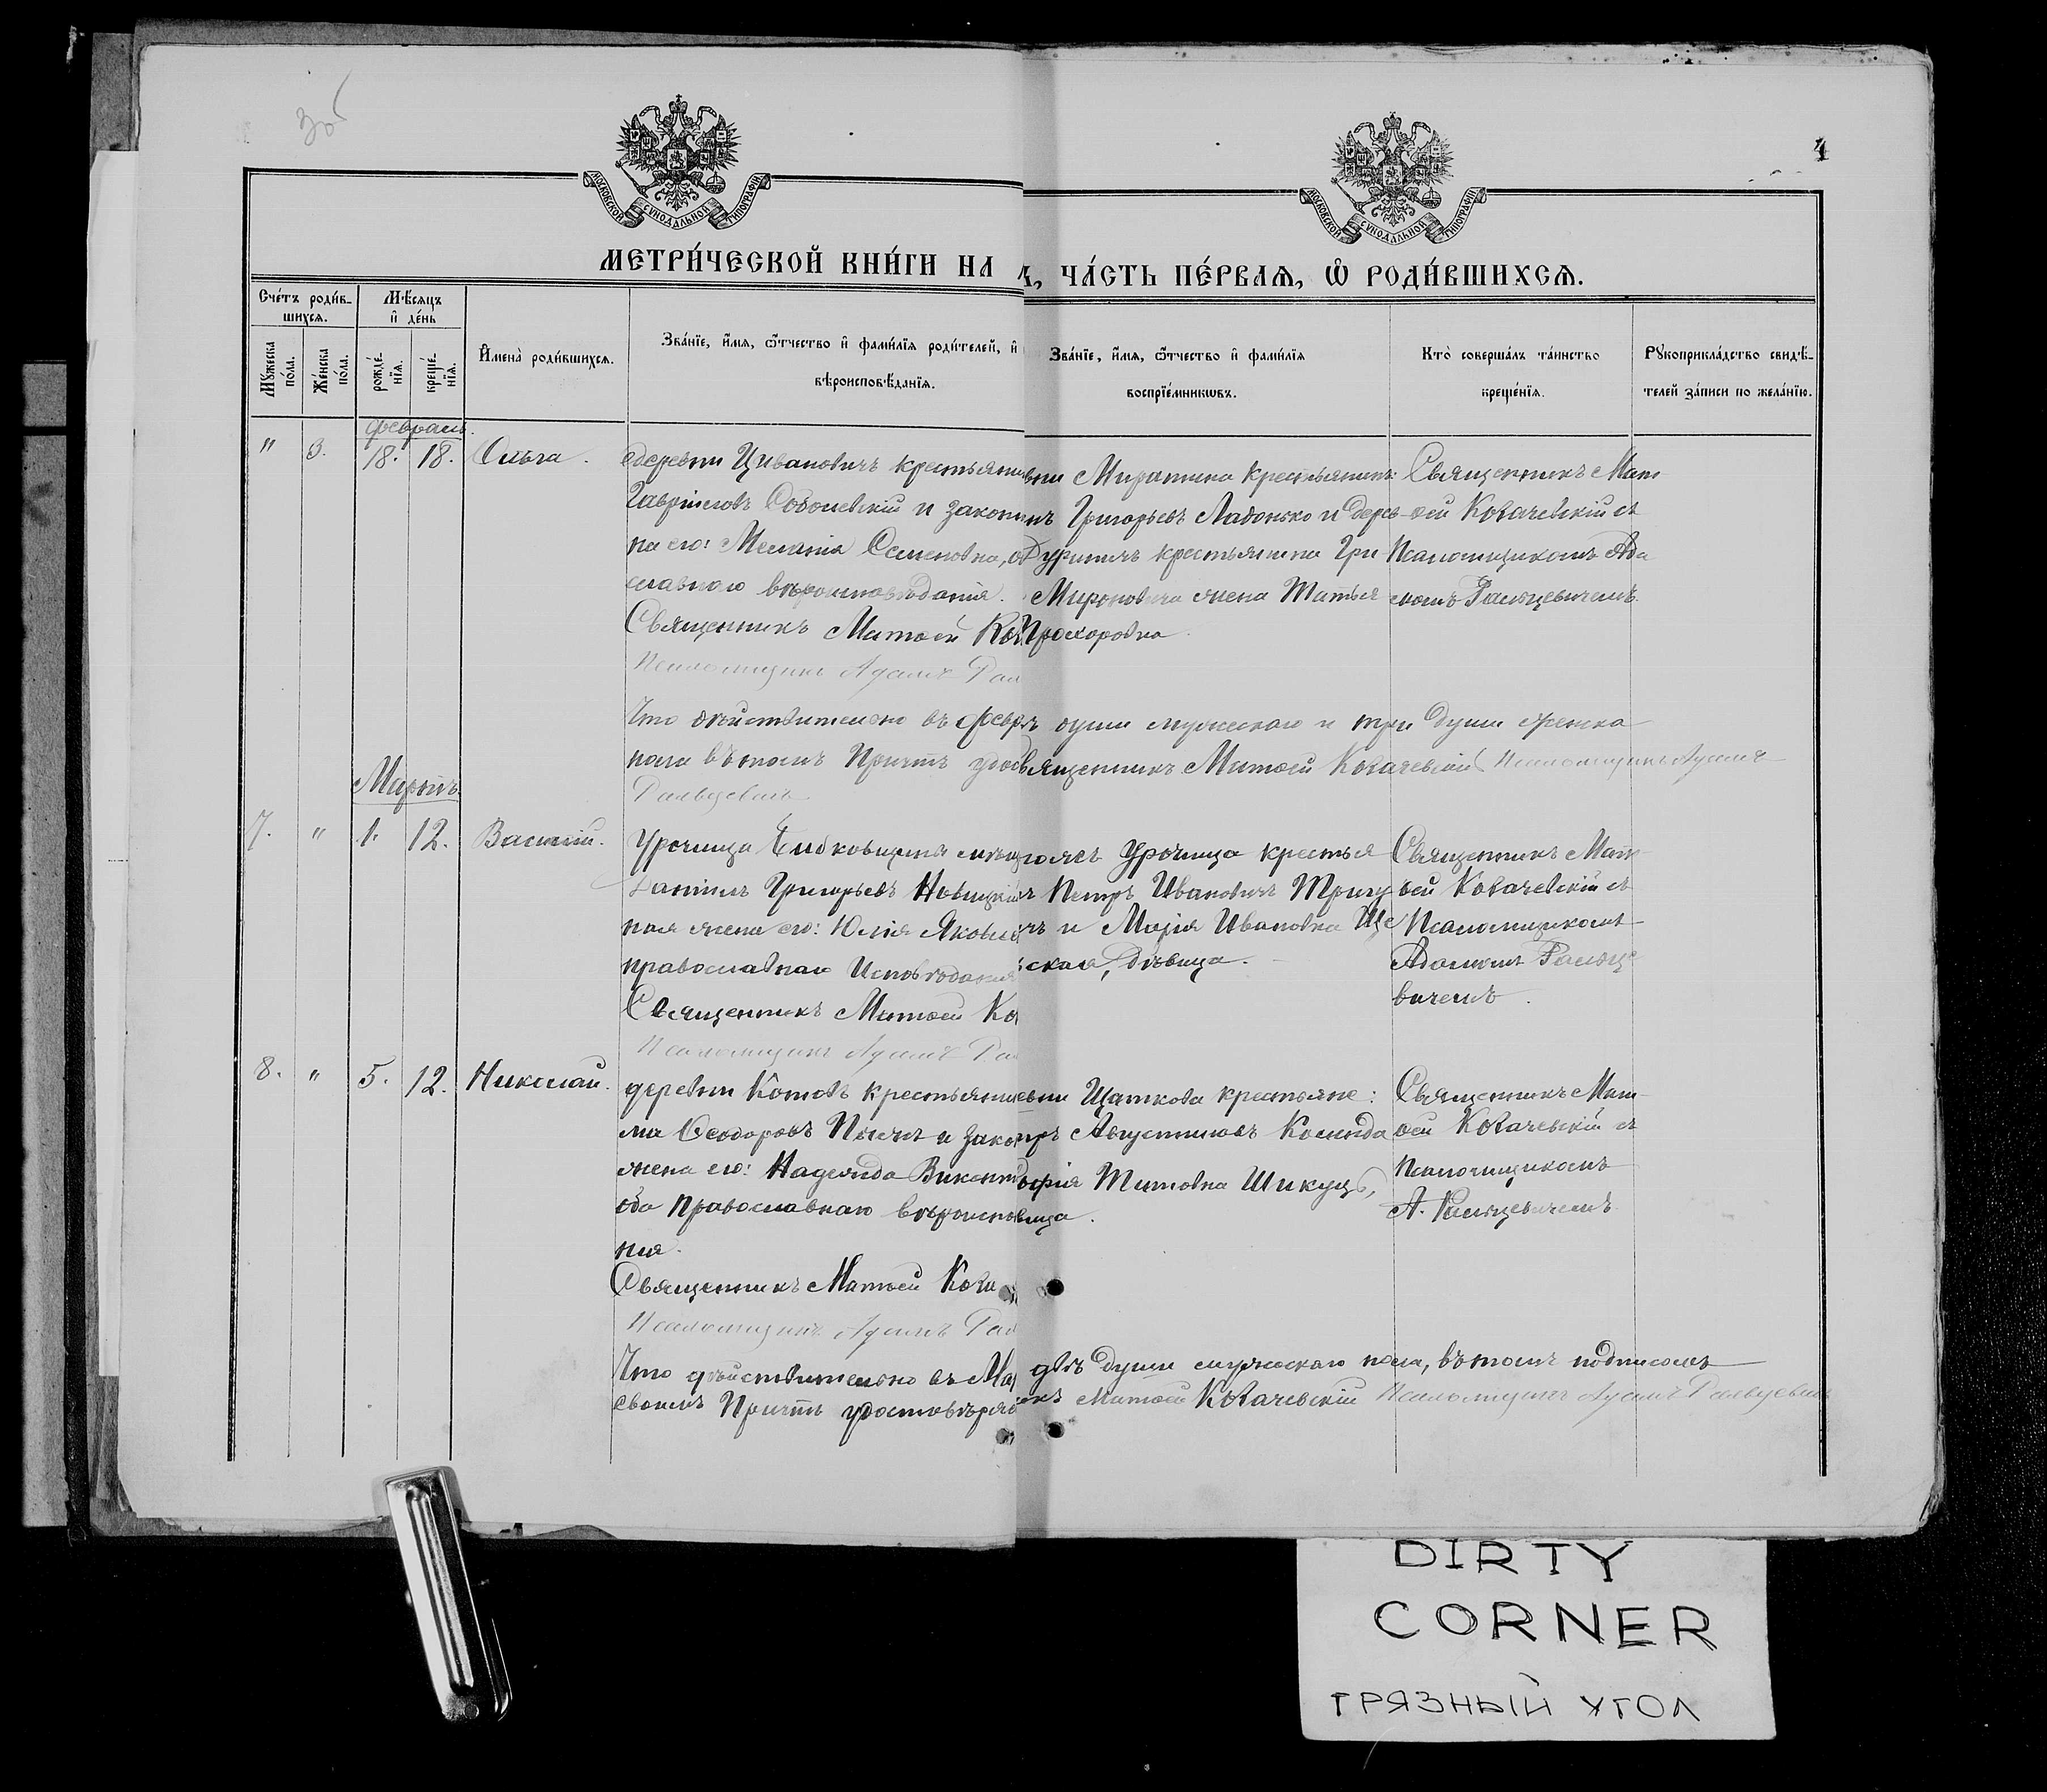 4
МОСКОВСКОЙ СУНОДАЛЬНОЙ ТИПОГРАФІИ
МОСКОВСКОЙ СУНОДАЛЬНОЙ ТИПОГРАФІИ
МЕТРИ́ЧЕСКОЙ КНИ́ГИ НА
, ЧА́СТЬ ПЕ́РВАѦ, Ѽ РОДИ́ВШИХСѦ.
Сче́тъ роди́в-
шихсѧ.
Мѣ́сѧцъ
и҆ де́нь
Мꙋ́жеска по́ла.
Же́нска по́ла.
рожде́-
нїѧ.
креще́-
нїѧ.
И҆мена̀ роди́вшихсѧ.
Зва́нїе, и҆́мѧ, ѻ҆́тчество и҆ фами́лїѧ роди́телей, и҆
вѣроисповѣ́данїѧ.
Зва́нїе, и҆́мѧ, ѻ҆́тчество и҆ фами́лїѧ
воспрїе́мникѡвъ.
Кто̀ соверша́лъ та́инство
креще́нїѧ.
Рꙋкоприкла́дство свидѣ́-
телей за́писи по жела́нїю.
Февраль.
" 3. 18. 18. Ольга.
деревни Цивановичъ крестьянин
Гавріиловъ Соболевскій и законн
на его: Меланія Семеновна, о
славнаго вѣроисповѣданія.
Священникъ Матѳей Ков
Псаломщикъ Адамъ Рал
вни Миратина крестьянинъ
нъ Григорьевъ Ладонько и дерев-
крестьянина Гри
Мироновича жена Татья
Прохоровна
Священникъ Мат-
ѳей Ковачевскій съ
Псаломщикомъ Ада
момъ Ральцевичемъ.
Что дѣйствительно въ Февр
души мужескаго и три души женска
пола въ томъ Причтъ удос
вященникъ Матѳей Ковачевскій Псаломщикъ Адамъ
Ральцевичъ
Мартъ.
7. " 1. 12. Василій.
Урочища
Григорьевъ Новицкій
ная жена его: Юлія Яковле
православнаго Исповѣданія
Священникъ Матѳей Ко
Псаломщикъ Адамъ Рал
гоже Урочища крестья
Петръ Ивановичъ
и Марія Ивановна Ще
ская, дѣвица.
Священникъ Мат-
ѳей Ковачевскій съ
Псаломщикомъ
Адамомъ Ральце
вичемъ.
8. " 5. 12. Николай.
деревни Котовъ крестьянин
ма Ѳеодоровъ и закон
жена его: Надежда Викент
оба Православнаго вѣроисповѣ
нія.
Священникъ Матѳей Кова
Псаломщикъ Адамъ Рал
евни Щаткова крестьяне:
Августиновъ Коленда
офія Титовна Шикуць,
вица.
Священникъ Мат-
ѳей Ковачевскій съ
псаломщикомъ
А. Ральцевичемъ.
Что дѣйствительно въ Ма
двѣ души мужескаго пола, въ томъ подписомъ
своимъ Причтъ удостовѣряе
Матѳей Ковачевскій Псаломщикъ Адамъ Ральцевичъ
DIRTY
CORNER
ГРЯЗНЫЙ УГОЛ